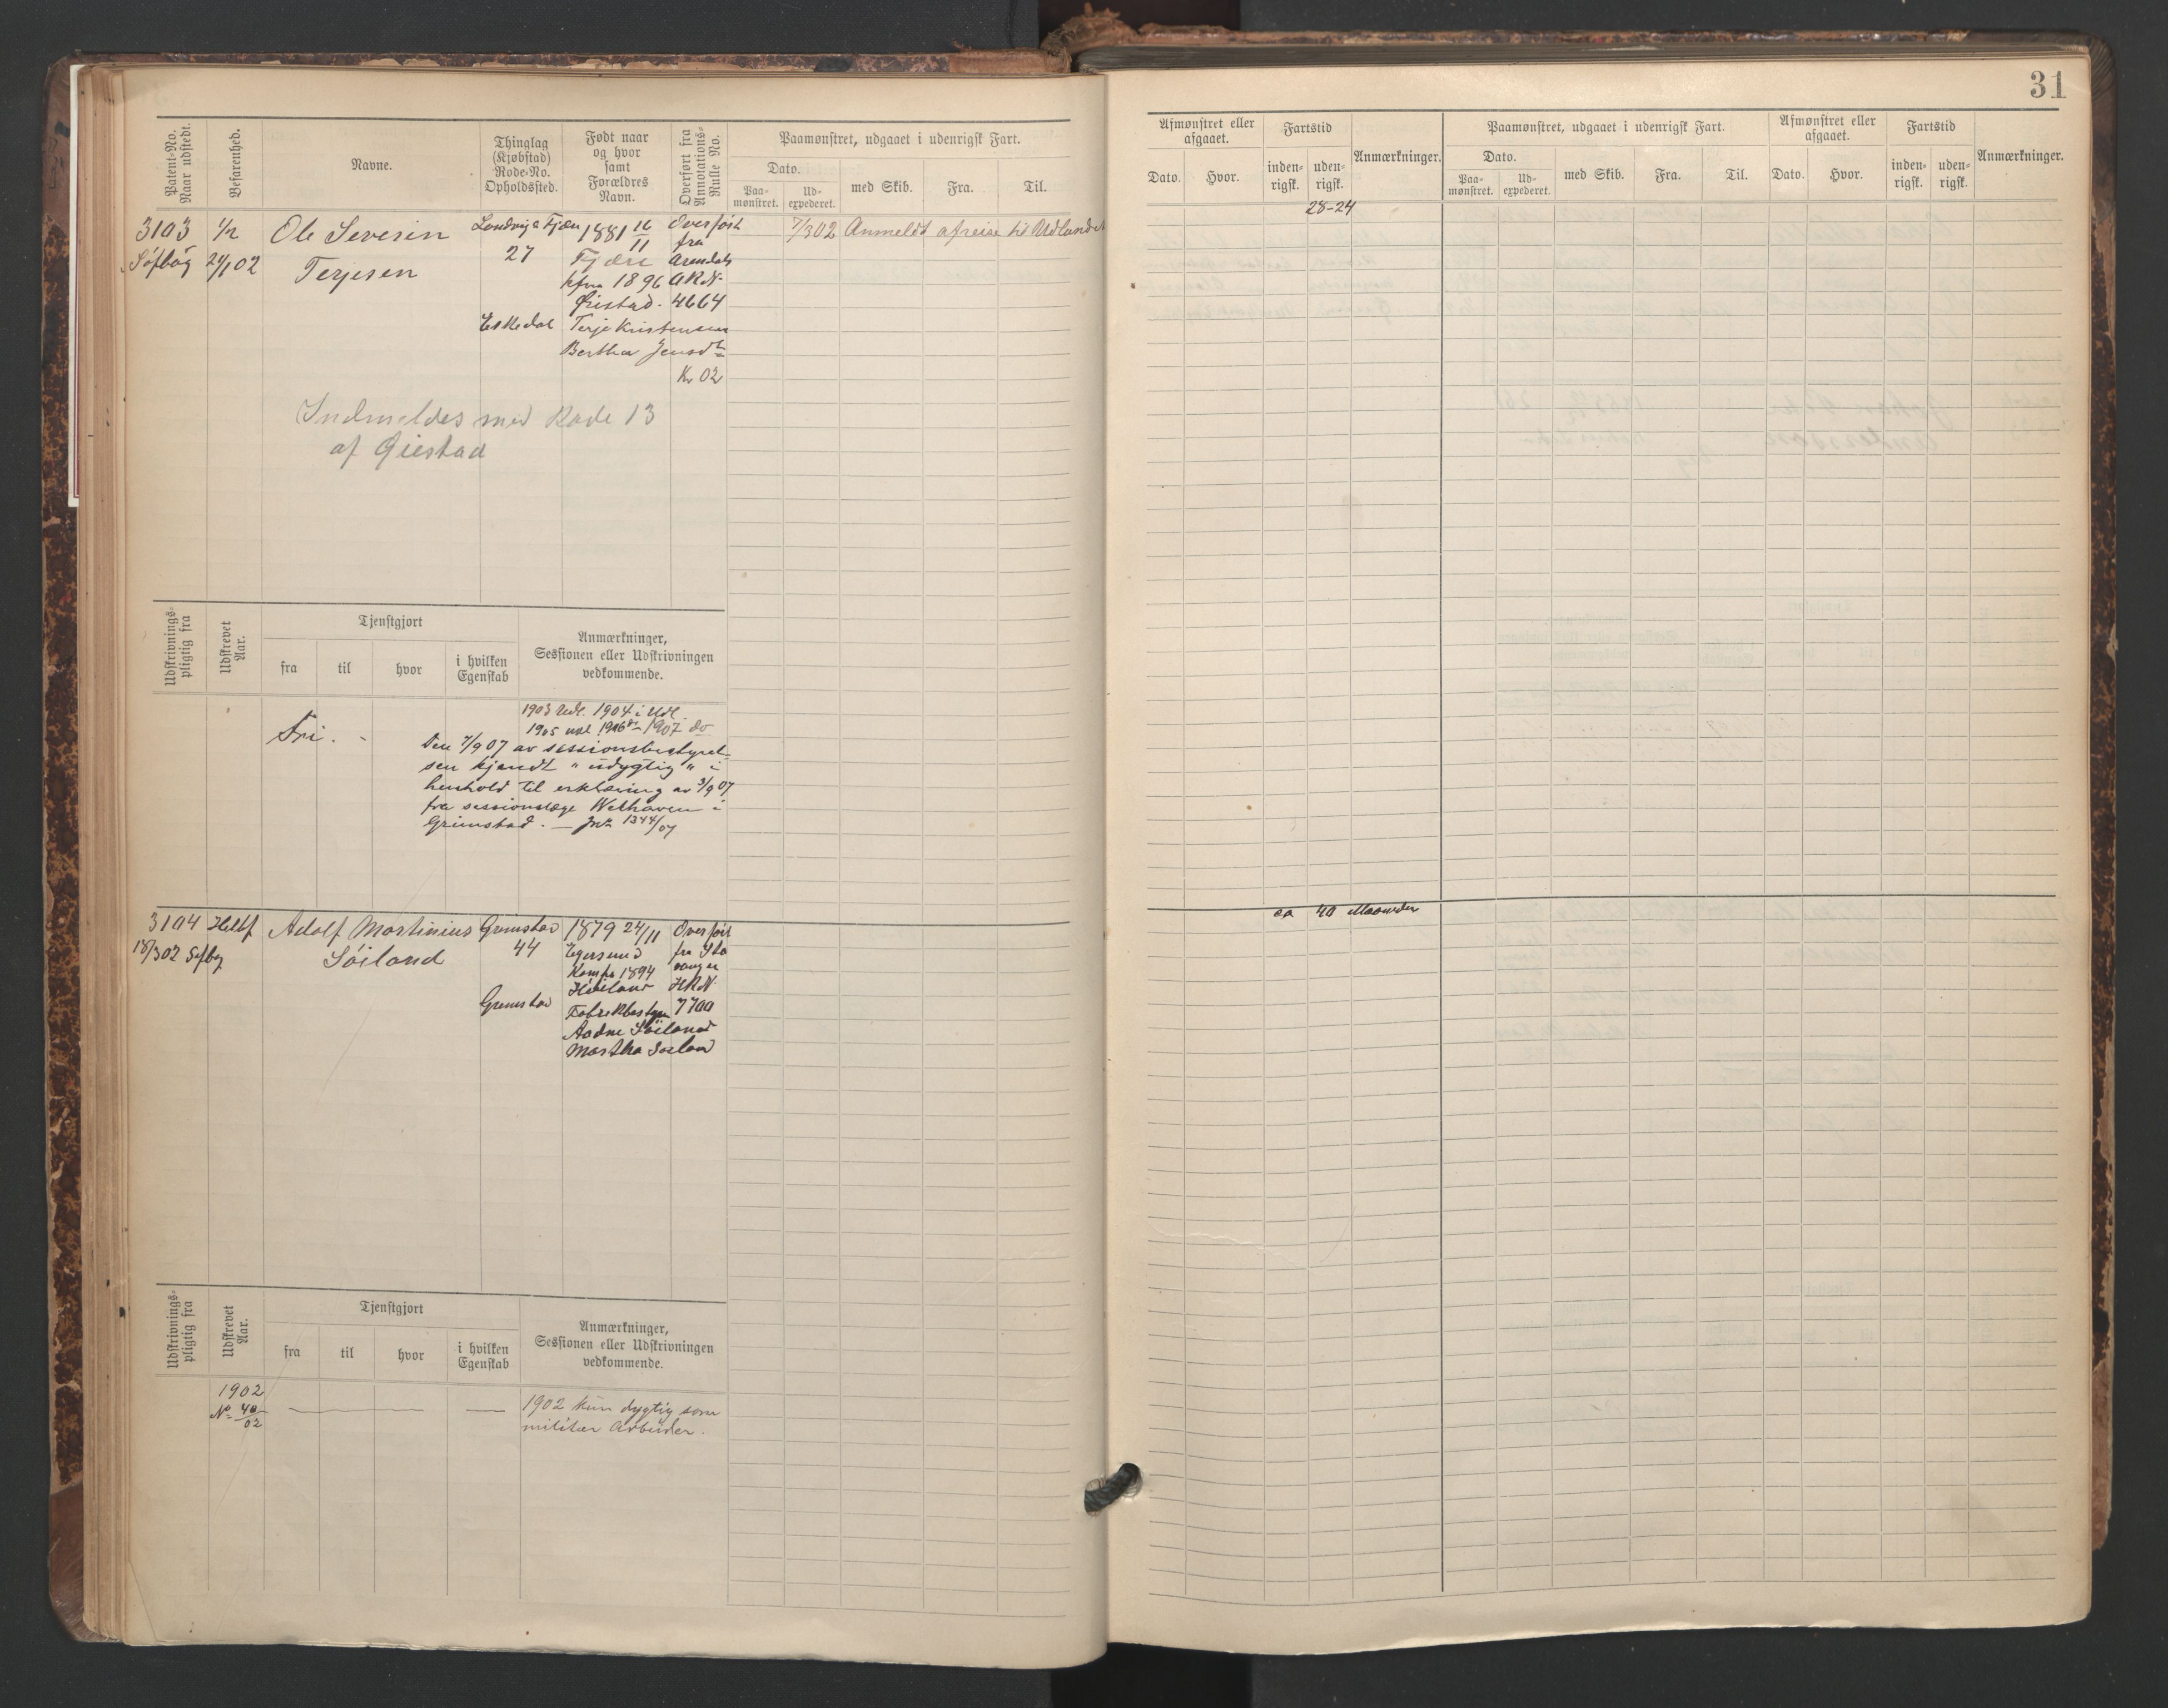 31
Patent-No. Naar udstedt.
Befarenhed.
Navne.
Thinglag (Kjøbstad) Rode-No. Opholdssted.
Født naar og hvor samt Forældres Navn.
Overført fra Annotations-Rulle No.
Paamønstret, udgaaet i udenrigsk Fart.
Dato.
Paa-mønstret.
Ud-expederet.
med Skib.
Fra.
Til.
Afmønstret eller afgaaet.
Dato.
Hvor.
Fartstid
inden-rigsk.
uden-rigsk.
Anmærkninger.
Paamønstret, udgaaet i udenrigsk Fart.
Dato.
Paa-mønstret.
Ud-expederet.
med Skib.
Fra.
Til.
Afmønstret eller afgaaet.
Dato.
Hvor.
Fartstid
inden-rigsk.
uden-rigsk.
Anmærkninger.
3103 1/2 Ole Severin Landvig & Fjære 1881 16/11 Overført 7/302 Anmeldt afreise til Udlandet
28-24
Søfbog 24/1 02 Terjesen 27 Fjære fra Arendals
kfm 1896 ARN.
Øiestad. 4664
Eskedal Terje Kristensen
Bertha Jensdt.
Kr 02
Indmeldes med Rode 13
af Øiestad
Udskrivnings-pligtig fra
Udskrevet Aar.
Tjenstgjort
fra
til
hvor
i hvilken Egenskab
Anmærkninger, Sessionen eller Udskrivningen vedkommende.
Fri. -
1903 Udl. 1904 i Udl.
1905 udl 1906 do 1907 do
Den 7/9 07 av sessionsbestyrel-
sen kjendt "udygtig" i
henhold til erklæring av 3/9 07
fra sessionslæge Welhaven i
Grimstad. — Jn. 1344/07
3104 Helbf Adolf Martinius Grimstad 1879 24/11 Overført
ca 40 Maaneder
18/302 Søfbog Søiland 44 Egersund fra Sta
Komf. 1894 vanger
Høiland HRN.
Grimstad Fabrikbestyr 7700
Aadne Söiland
Martha Soiland
Udskrivnings-pligtig fra
Udskrevet Aar.
Tjenstgjort
fra
til
hvor
i hvilken Egenskab
Anmærkninger, Sessionen eller Udskrivningen vedkommende.
1902 1902 kun dygtig som
No 40/02 — — — militær Arbeider.